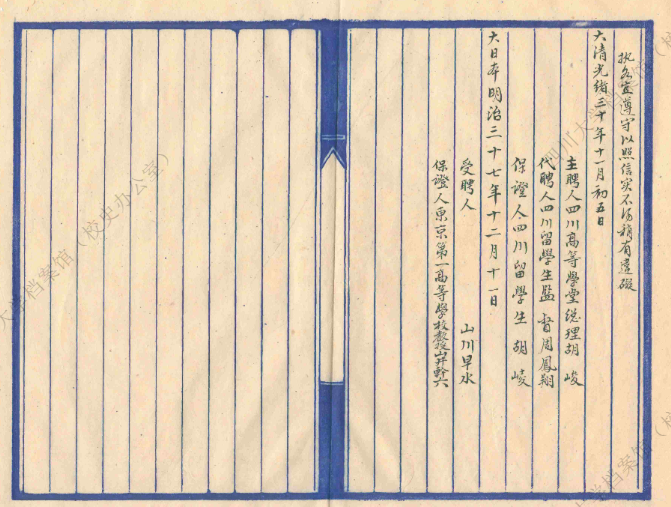 执各宜遵守以照信实不得稍有违碍
大清光绪三十年十一月初五日
主聘人四川高等學堂総理胡峻
代聘人四川留學生監督周鳳翔
保證人四川留學生胡崚
大日本明治三十七年十二月十一日
受聘人 山川早水
保證人東京第一高等學校教授岩井幹六
四川大学档案馆（校史办公室）
大学档案馆（校史办公室）